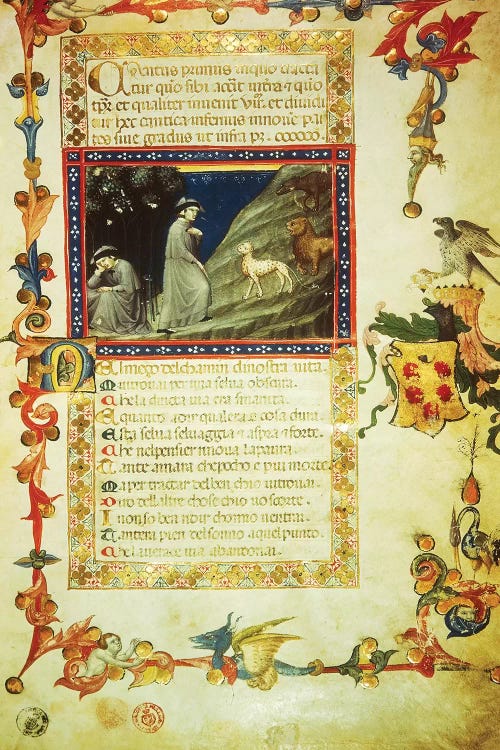 primus in quo tracta
tur quo sibi et quo
et qualiter invenit et
hec cantica infernus in nove par
tes sive gradus ut infra
Nel mezo del chamin di nostra vita.
Mi ritrovai per una selva obscura.
Che la diricta via era smarrita.
E quanto a dir qual era e cosa dura.
Esta selva selvaggia et aspra e forte.
Che nel pensier rinova la paura.
Tante amara che pocho e piu morte.
Ma per tractar del ben chio vi trovai.
Diro dellaltre chose chio vo scorte.
I non so ben ridir chomio nentrai.
Tantera pien del sonno a quel punto.
Che la verace via abandonai.